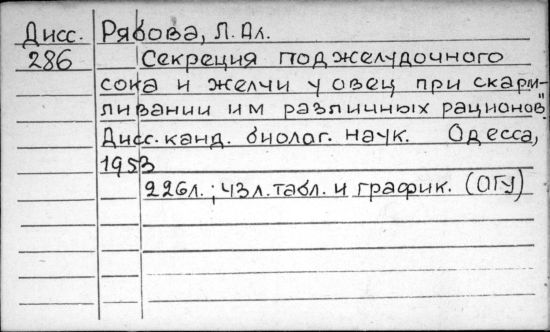 Дисс. Рябова, Л. Ал.
286 Секреция поджелудочного
сока и желчи у овец при скарм-
ливании им различных рационов.
Дисс. канд. биолог. наук. Одесса,
1953
226л.; 43л. табл. и график. (ОГУ)